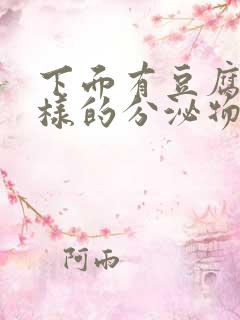 下面有豆腐
样的分泌物
阿雨